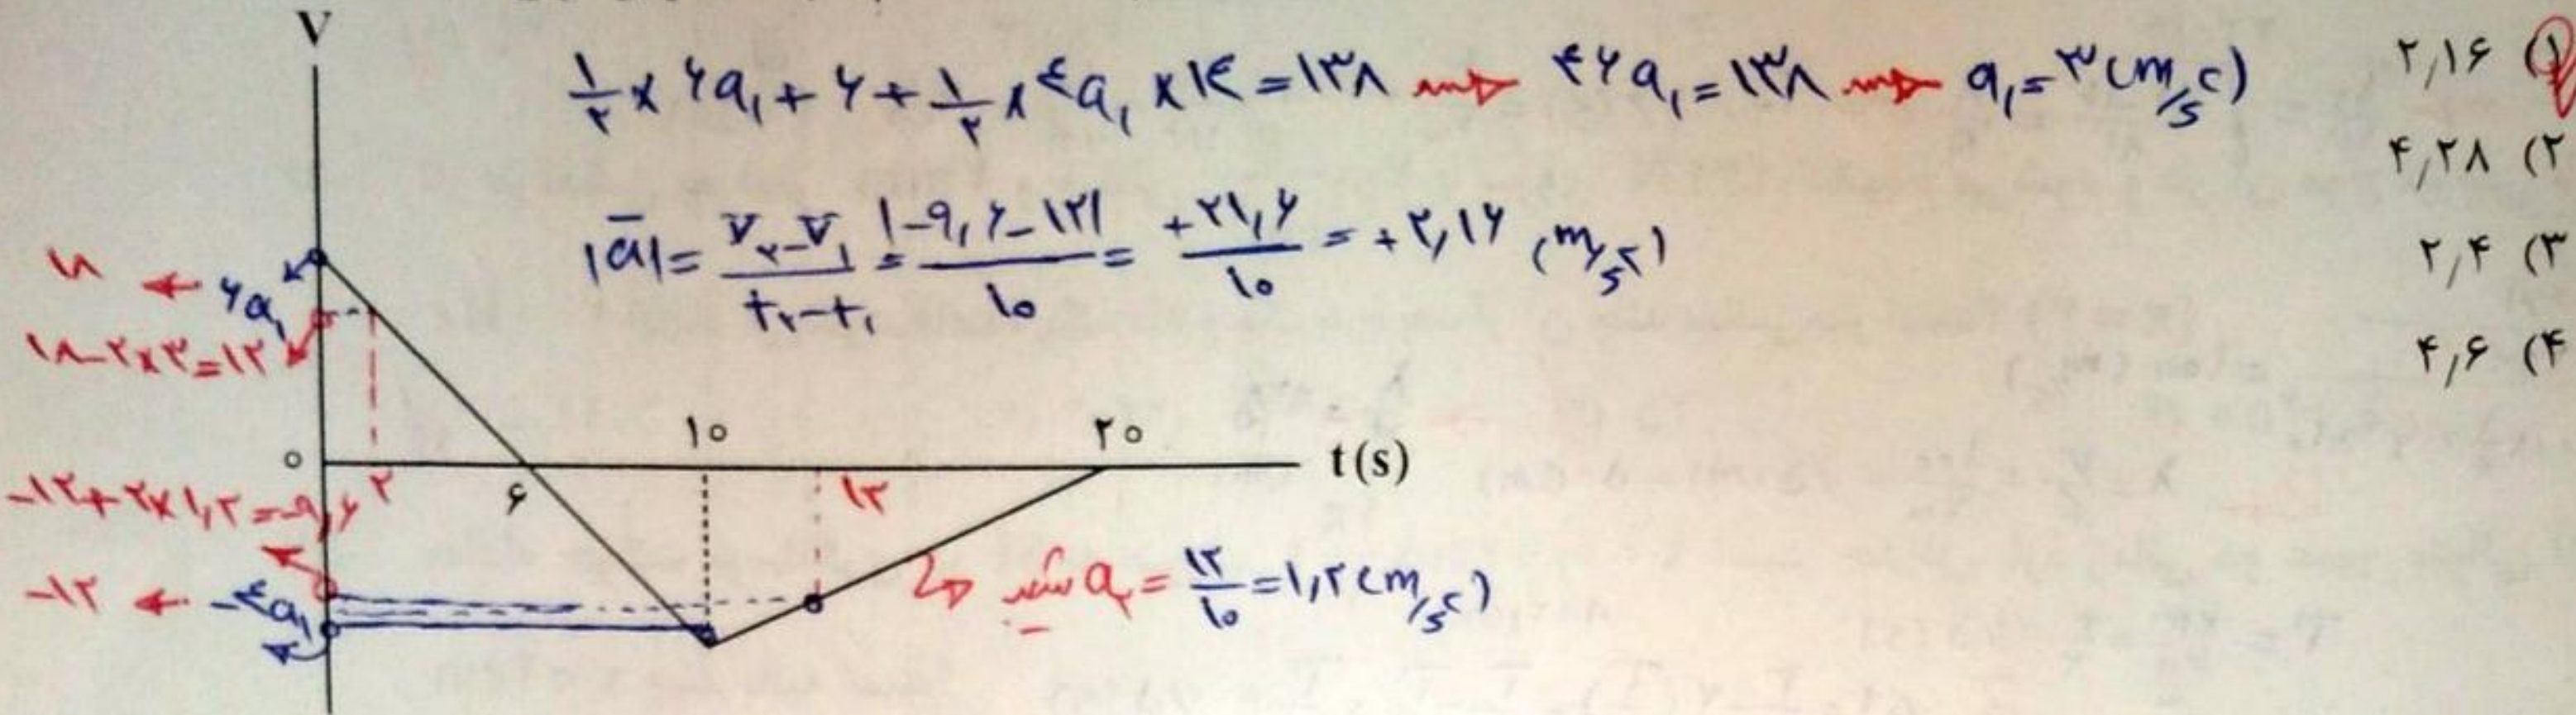 V
۱/۲ × ۶a₁ + ۶ + ۱/۲ × ۴a₁ × ۱۴ = ۱۳۸ ⇒ ۴۶a₁ = ۱۳۸ ⇒ a₁ = ۳ (m/s²)
|ā| = (V₂ − V₁)/(t₂ − t₁) = |−۹,۶ − ۱۲|/۱۰ = +۲۱,۶/۱۰ = +۲,۱۶ (m/s²)
۱) ۲,۱۶
۲) ۴,۲۸
۳) ۲,۴
۴) ۴,۶
۱۸ ← ۶a₁
۱۸ − ۲×۳ = ۱۲
۱۰
۲۰
۰
t(s)
۲
۶
۱۲
−۱۲ + ۲×۱,۲ = −۹,۶
−۱۲ ← −۴a₁
شیب a₂ = ۱۲/۱۰ = ۱,۲ (m/s²)